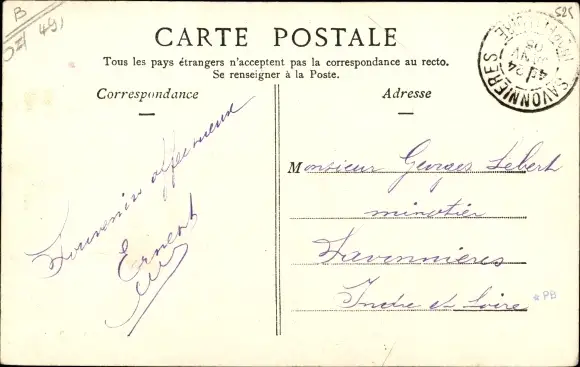 B
525
CARTE POSTALE
Tous les pays étrangers n'acceptent pas la correspondance au recto.
Se renseigner à la Poste.
Correspondance
Adresse
SAVONNIERES
24
INDRE-ET-LOIRE
Souvenir affectueux
Ernest
Monsieur Georges Lebert
minotier
Savonnières
Indre et Loire
* PB